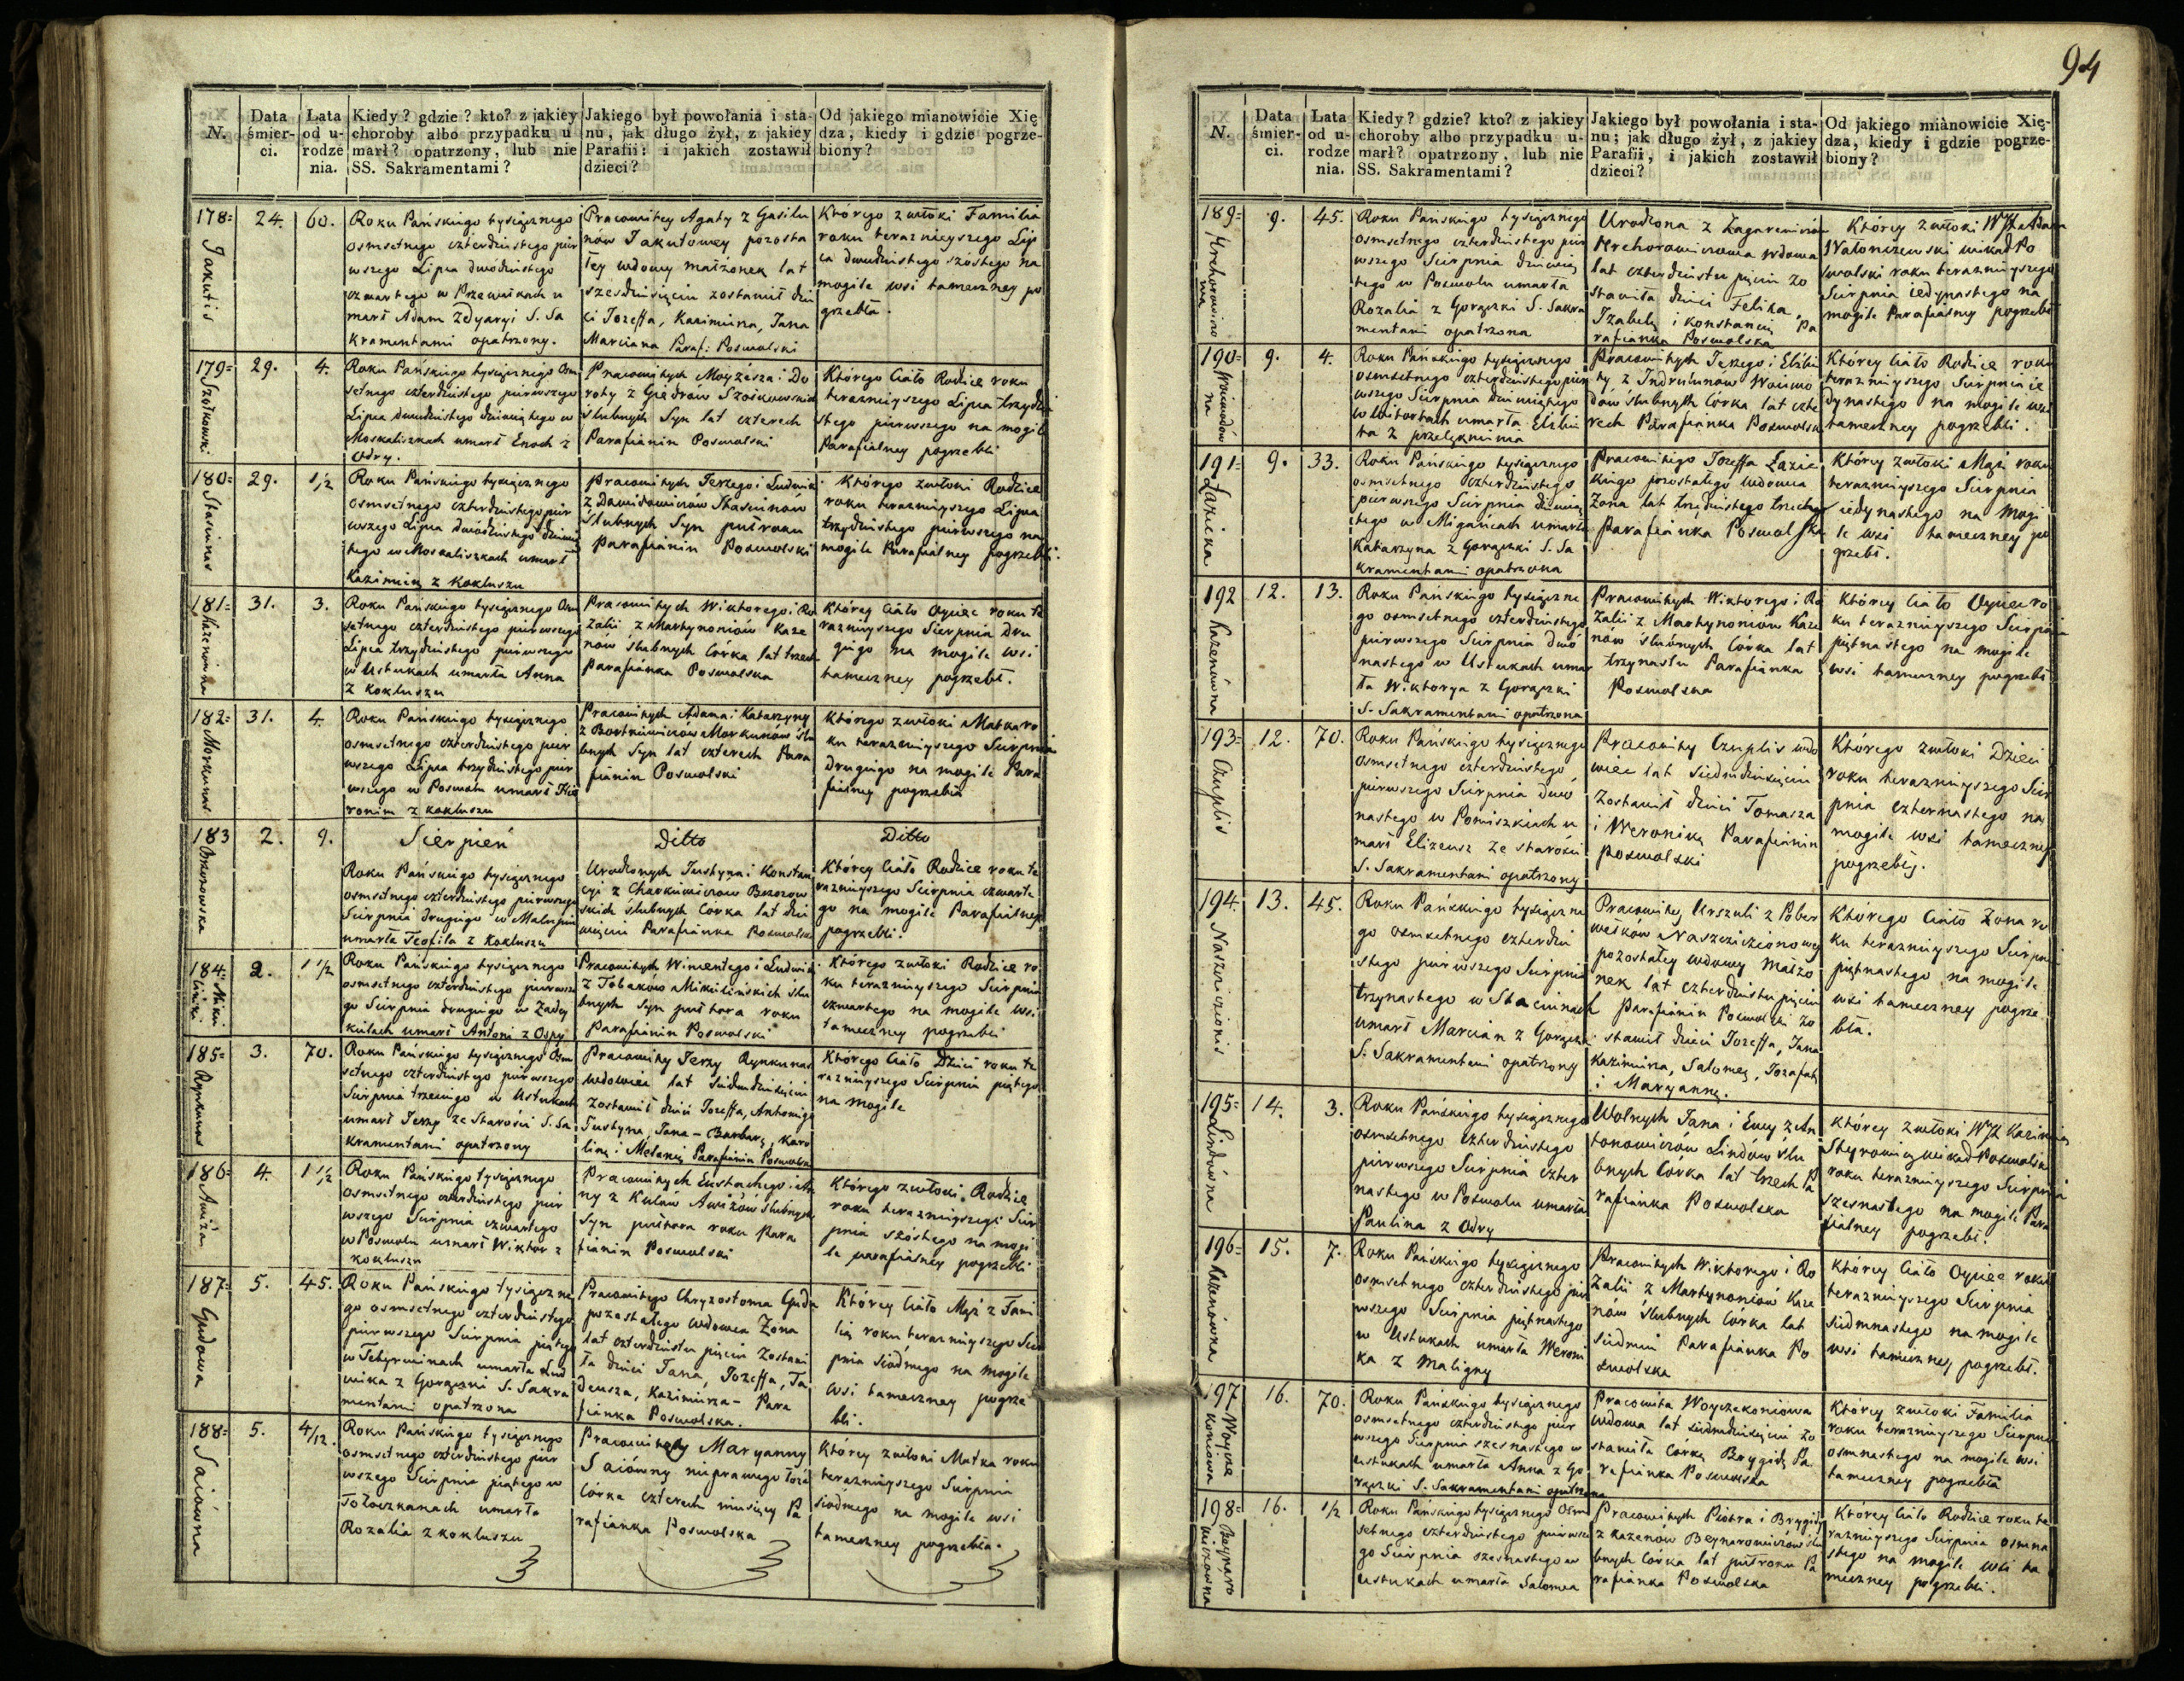 94
N.
Data śmier- ci.
Lata od u- rodze nia.
Kiedy? gdzie? kto? z jakiey
choroby albo przypadku u
marł? opatrzony, lub nie
SS. Sakramentami?
Jakiego był powołania i sta-
nu, jak długo żył, z jakiey
Parafii: i jakich zostawił
dzieci?
Od jakiego mianowicie Xię
dza, kiedy i gdzie pogrze-
biony?
178=
Jakutis
24.
60.
Roku Pańskiego tysiącznego
osmsetnego czterdziestego pier
wszego Lipca dwódziestego
czwartego w Przewalkach u
marł Adam z Dyaryi S. Sa
kramentami opatrzony.
Pracowitey Agaty z Gasilu
nów Jakutowey pozosta
łey wdowy małżonek lat
szesdziesięciu zostawił dzie
ci Jozeffa, Kazimierza, Jana
Marciana Paraf: Poswolski
Którego zwłoki Familia
roku terazнieyszego Lip
ca dwudziestego szóstego na
mogile wsi tameczney po
grzebła.
179=
29.
4.
Roku Pańskiego tysiącznego Osm
setnego czterdziestego pierwszego
Lipca dwudziestego dziewiątego w
Moskaliszkach umarł Enoch z
Odry.
Pracowitych Moyżesza i Do
roty z Giedrow
Slubnych Syn lat czterech
Parafianin Poswolski
Którego Ciało Rodzice roku
teraznieyszego Lipca trzydzie
stego pierwszego na mogile
Parafialney pogrzebli
180=
Stasiunas
29.
1/2
Roku Pańskiego tysiącznego
osmsetnego czterdziestego pier
wszego Lipca dwódziestego dziewią
tego w Moskaliszkach umarł
Kazimierz z Kokluszu
Pracowitych Jerzego i Ludwiki
z Dawidowiczów Stasiunów
Slubnych Syn pułroku
Parafianin Poswolski
Którego zwłoki Rodzice
roku teraznieyszego Lipca
trzydziestego pierwszego na
mogile Parafialney pogrzebli.
181=
31.
3.
Roku Pańskiego tysiącznego Osm
setnego czterdziestego pierwszego
Lipca trzydziestego pierwszego
w Ustukach umarła Anna
z kokluszu
Pracowitych Wiktorego i Ro
zalii z Martynoniów Kaze
nów ślubnych Córka lat trzech
Parafianka Poswolska
Którey Ciało Oyciec roku te
raznieyszego Sierpnia Dru
giego na mogile wsi
tameczney pogrzebł.
182=
Morkunas
31.
4.
Roku Pańskiego tysiącznego
osmsetnego czterdziestego pier
wszego Lipca trzydziestego pier
wszego w Poswolu umarł Hie
ronim z kokluszu
Pracowitych Adama i Katarzyny
z Bortkiewiczów Morkunów ślu
bnych Syn lat czterech Para
fianin Poswolski
Którego zwłoki Matka ro
ku teraznieyszego Sierpnia
drugiego na mogile Para
fialney pogrzebła
183
Brzozowska
2.
9.
Sierpień
Roku Pańskiego tysiącznego
osmsetnego czterdziestego pierwszego
Sierpnia drugiego w
umarła Teofila z Kokluszu
Ditto
Urodzonych Justyna i Konstan
cyi z Charkiewiczow Brzozow
skich ślubnych Córka lat dzie
więciu Parafianka Poswolska
Ditto
Którey Ciało Rodzice roku te
raznieyszego Sierpnia czwarte
go na mogile Parafialney
pogrzebli.
184=
2.
1 1/2
Roku Pańskiego tysiącznego
osmsetnego czterdziestego pierwsze
go Sierpnia drugiego w Zadey
kielach umarł Antoni z Ospy
Pracowitych Wincentego i Ludwiki
z Tobaków Mikulińskich ślu
bnych Syn pułtora roku
Parafianin Poswolski
Którego zwłoki Rodzice ro
ku teraznieyszego Sierpnia
czwartego na mogile wsi
tameczney pogrzebli
185=
Rynkunas
3.
70.
Roku Pańskiego tysiącznego Osm
setnego czterdziestego pierwszego
Sierpnia trzeciego w Ustukach
umarł Jerzy ze Starości S. Sa
kramentami opatrzony
Pracowity Jerzy Rynkunas
wdowiec lat Siedmdziesięciu
zostawił dzieci Jozeffa, Antoniego
Justyna, Jana - Barbarę, Karo
linę i Melanię Parafianin Poswolski
Którego Ciało Dzieci roku te
raznieyszego Sierpnia piątego
na mogile
186=
4.
1 1/2
Roku Pańskiego tysiącznego
osmsetnego czterdziestego pier
wszego Sierpnia czwartego
w Poswolu umarł Wiktor z
kokluszu
Pracowitych Eustachego i An
ny z Kulów Awiżów Slubnych
Syn pułtora roku Para
fianin Poswolski
Którego zwłoki Rodzice
roku teraznieyszego Sier
pnia szóstego na mogi
le parafialney pogrzebli
187=
Gudowa
5.
45.
Roku Pańskiego tysiączne
go osmsetnego czterdziestego
pierwszego Sierpnia piątego
w Tetyrwinach umarła Lud
wika z Gorączki S. Sakra
mentami opatrzona
Pracowitego Chryzostoma Guda
pozostałego wdowca Żona
lat czterdziestu pięciu Zostawi
ła dzieci Jana, Jozeffa, Ta
deusza, Kazimierza - Para
fianka Poswolska.
Którey Ciało Mąż z Fami
lią roku teraznieyszego Sier
pnia Siódmego na mogile
wsi tameczney pogrze
bli.
188=
Saiówna
5.
4/12.
Roku Pańskiego tysiącznego
osmsetnego czterdziestego pier
wszego Sierpnia piątego w
Tołoczkanach umarła
Rozalia z kokluszu
Pracowitey Maryanny
Saiówny nieprawego łoża
Córka czterech miesięcy Pa
rafianka Poswolska
Którey zwłoki Matka roku
teraznieyszego Sierpnia
siódmego na mogile wsi
tameczney pogrzebła.
N.
Data śmier- ci.
Lata od u- rodze nia.
Kiedy? gdzie? kto? z jakiey
choroby albo przypadku u-
marł? opatrzony, lub nie
SS. Sakramentami?
Jakiego był powołania i sta-
nu; jak długo żył, z jakiey
Parafii, i jakich zostawił
dzieci?
Od jakiego mianowicie Xię-
dza, kiedy i gdzie pogrze-
biony?
189=
9.
45.
Roku Pańskiego tysiącznego
osmsetnego czterdziestego pier
wszego Sierpnia dziewią
tego w Poswolu umarła
Rozalia z Gorączki S. Sakra
mentami opatrzona
Urodzona z Zagarewiczów
Hrehorowiczowa wdowa
lat czterdziestu pięciu zo
stawiła dzieci Felixa,
Izabelę i Konstancię Pa
rafianka Poswolska
Którey zwłoki WJX Adam
Wikary Po
swolski roku teraznieyszego
Sierpnia iedynastego na
mogile Parafialney pogrzebł
190=
9.
4.
Roku Pańskiego tysiącznego
osmsetnego czterdziestego pier
wszego Sierpnia dziewiątego
w Woitortach umarła Elżbie
ta z przelęknienia
Pracowitych Jerzego i Elżbie
ty z Indrulunow Woiewo
dów ślubnych Córka lat czte
rech Parafianka Poswolska
Którey Ciało Rodzice roku
teraznieyszego Sierpnia ie
dynastego na mogile wsi
tameczney pogrzebli.
191=
Łazicka
9.
33.
Roku Pańskiego tysiącznego
osmsetnego czterdziestego
pierwszego Sierpnia dziewią
tego w Migańcach umarła
Katarzyna z Gorączki S. Sa
kramentami opatrzona
Pracowitego Jozeffa Łazic
kiego pozostałego wdowca
Żona lat trzydziestu trzech
Parafianka Poswolska
Którey zwłoki Mąż roku
teraznieyszego Sierpnia
iedynastego na mogi
le wsi tameczney po
grzebł.
192
Kazenówna
12.
13.
Roku Pańskiego tysiączne
go osmsetnego czterdziestego
pierwszego Sierpnia dwó
nastego w Ustukach umar
ła Wiktorya z Gorączki
S. Sakramentami opatrzona
Pracowitych Wiktorego i Ro
zalii z Martynoniow Kaze
nów ślubnych Córka lat
trzynastu Parafianka
Poswolska
Którey Ciało Oyciec ro
ku teraznieyszego Sierpnia
piętnastego na mogile
wsi tameczney pogrzebł
193=
Czuplis
12.
70.
Roku Pańskiego tysiącznego
osmsetnego czterdziestego
pierwszego Sierpnia dwó
nastego w Pomiszkiach u
marł Elizeusz ze starości
S. Sakramentami opatrzony
Pracowity Czuplis wdo
wiec lat Siedmdziesięciu
Zostawił dzieci Tomasza
i Weronikę Parafianin
Poswolski
Którego zwłoki Dzieci
roku teraznieyszego Sier
pnia czternastego na
mogile wsi tameczney
pogrzebły.
194.
13.
45.
Roku Pańskiego tysiączne
go osmsetnego czterdzie
stego pierwszego Sierpnia
trzynastego w Staciunach
umarł Marcian z Gorączki
S. Sakramentami opatrzony
Pracowitey Urszuli z Pober
pozostałey wdowy małżo
nek lat czterdziestu pięciu
Parafianin Poswolski Zo
stawił dzieci Jozeffa, Jana
Kazimierza, Salomeę, Jozafatę
i Maryannę.
Którego Ciało Żona ro
ku teraznieyszego Sierpnia
piętnastego na mogile
wsi tameczney pogrze
bła.
195=
Lindówna
14.
3.
Roku Pańskiego tysiącznego
osmsetnego czterdziestego
pierwszego Sierpnia czter
nastego w Poswolu umarła
Paulina z Odry
Wolnych Jana i Ewy z An
tonowiczów Lindów ślu
bnych Córka lat trzech Pa
rafianka Poswolska
Którey zwłoki WJX Kazimierz
roku teraznieyszego Sierpnia
szesnastego na mogile Para
fialney pogrzebł.
196=
Kazenówna
15.
7.
Roku Pańskiego tysiącznego
osmsetnego czterdziestego pier
wszego Sierpnia piętnastego
w Ustukach umarła Weroni
ka z Maligny
Pracowitych Wiktorego i Ro
zalii z Martynoniów Kaze
nów Slubnych Córka lat
siedmiu Parafianka Po
swolska
Którey Ciało Oyciec roku
teraznieyszego Sierpnia
siedmnastego na mogile
wsi tameczney pogrzebł.
197
16.
70.
Roku Pańskiego tysiącznego
osmsetnego czterdziestego pier
wszego Sierpnia szesnastego w
Ustukach umarła Anna z Go
rączki S. Sakramentami opatrzona
Pracowita Woyczekoniowa
wdowa lat siedmdziesięciu zo
stawiła Corkę Brygidę Pa
rafianka Poswolska
Którey zwłoki Familia
roku teraznieyszego Sierpnia
osmnastego na mogile wsi
tameczney pogrzebła
198=
16.
1/2
Roku Pańskiego tysiącznego Osm
setnego czterdziestego pierwsze
go Sierpnia szesnastego w
Ustukach umarła Salomea
Pracowitych Piotra i Brygidy
z Kazenów Beynarowiczów ślu
bnych Corka lat pułroku Pa
rafianka Poswolska
Którey Ciało Rodzice roku te
raznieyszego Sierpnia osmna
stego na mogile wsi ta
meczney pogrzebli.